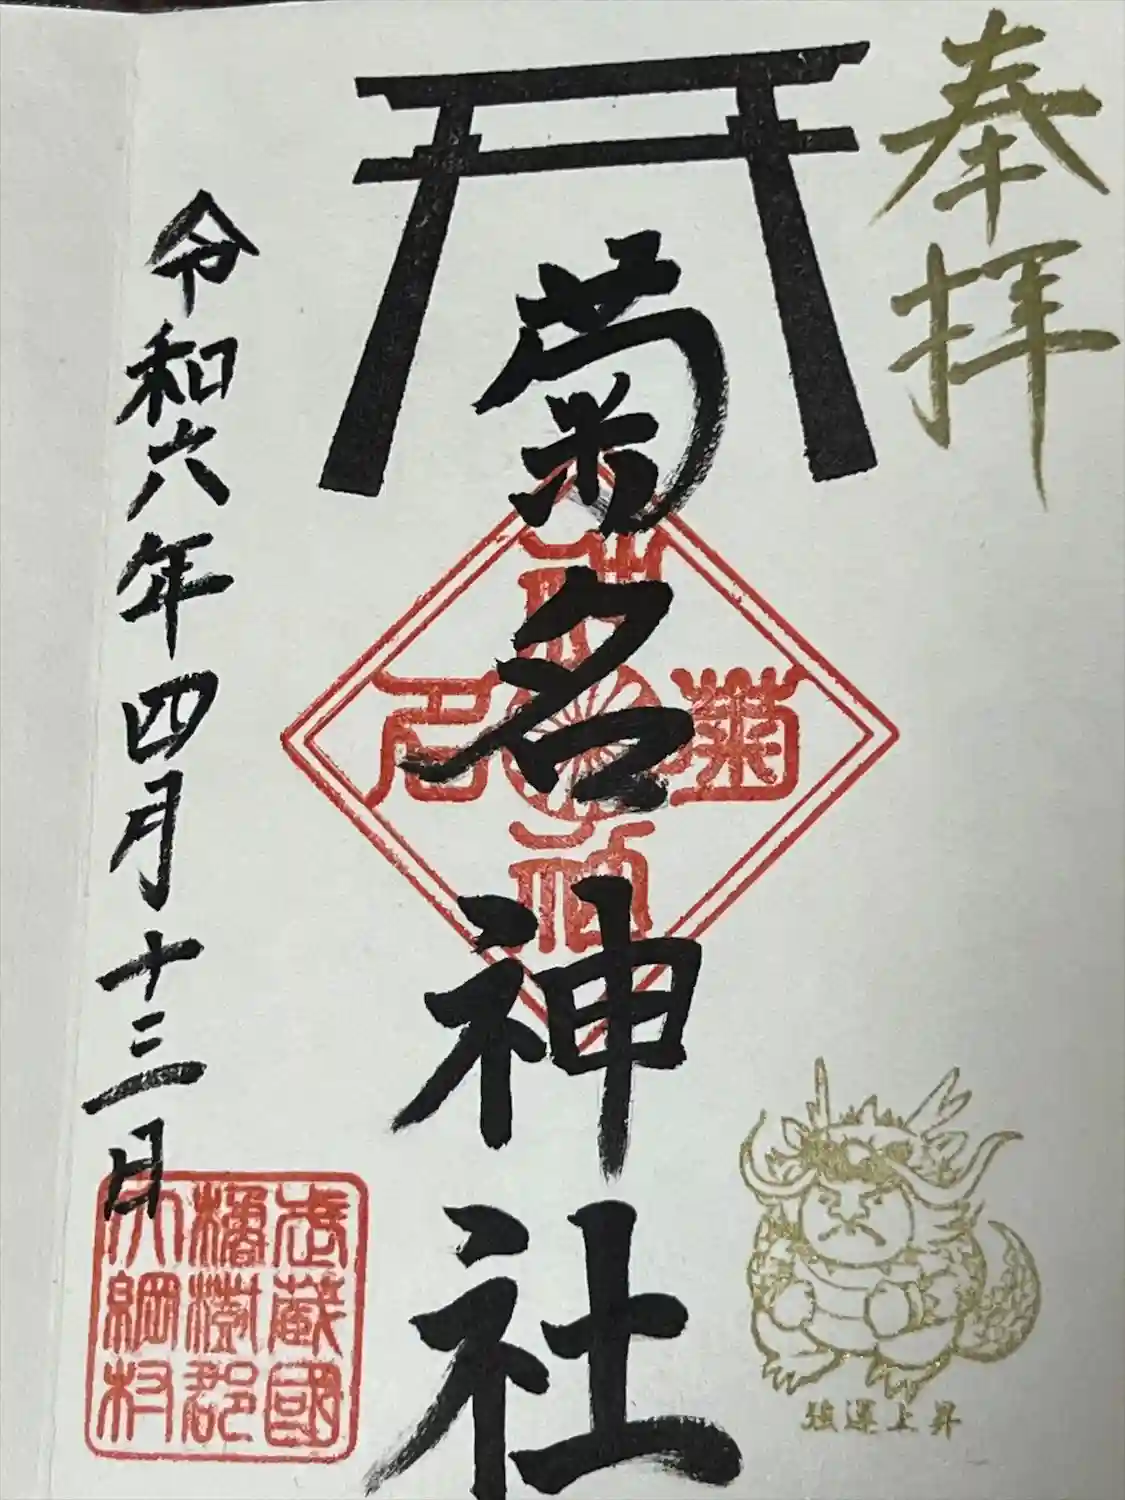 奉拝
菊名神社
菊名神社
令和六年四月十三日
武蔵國
橘樹郡
大綱村
強運上昇